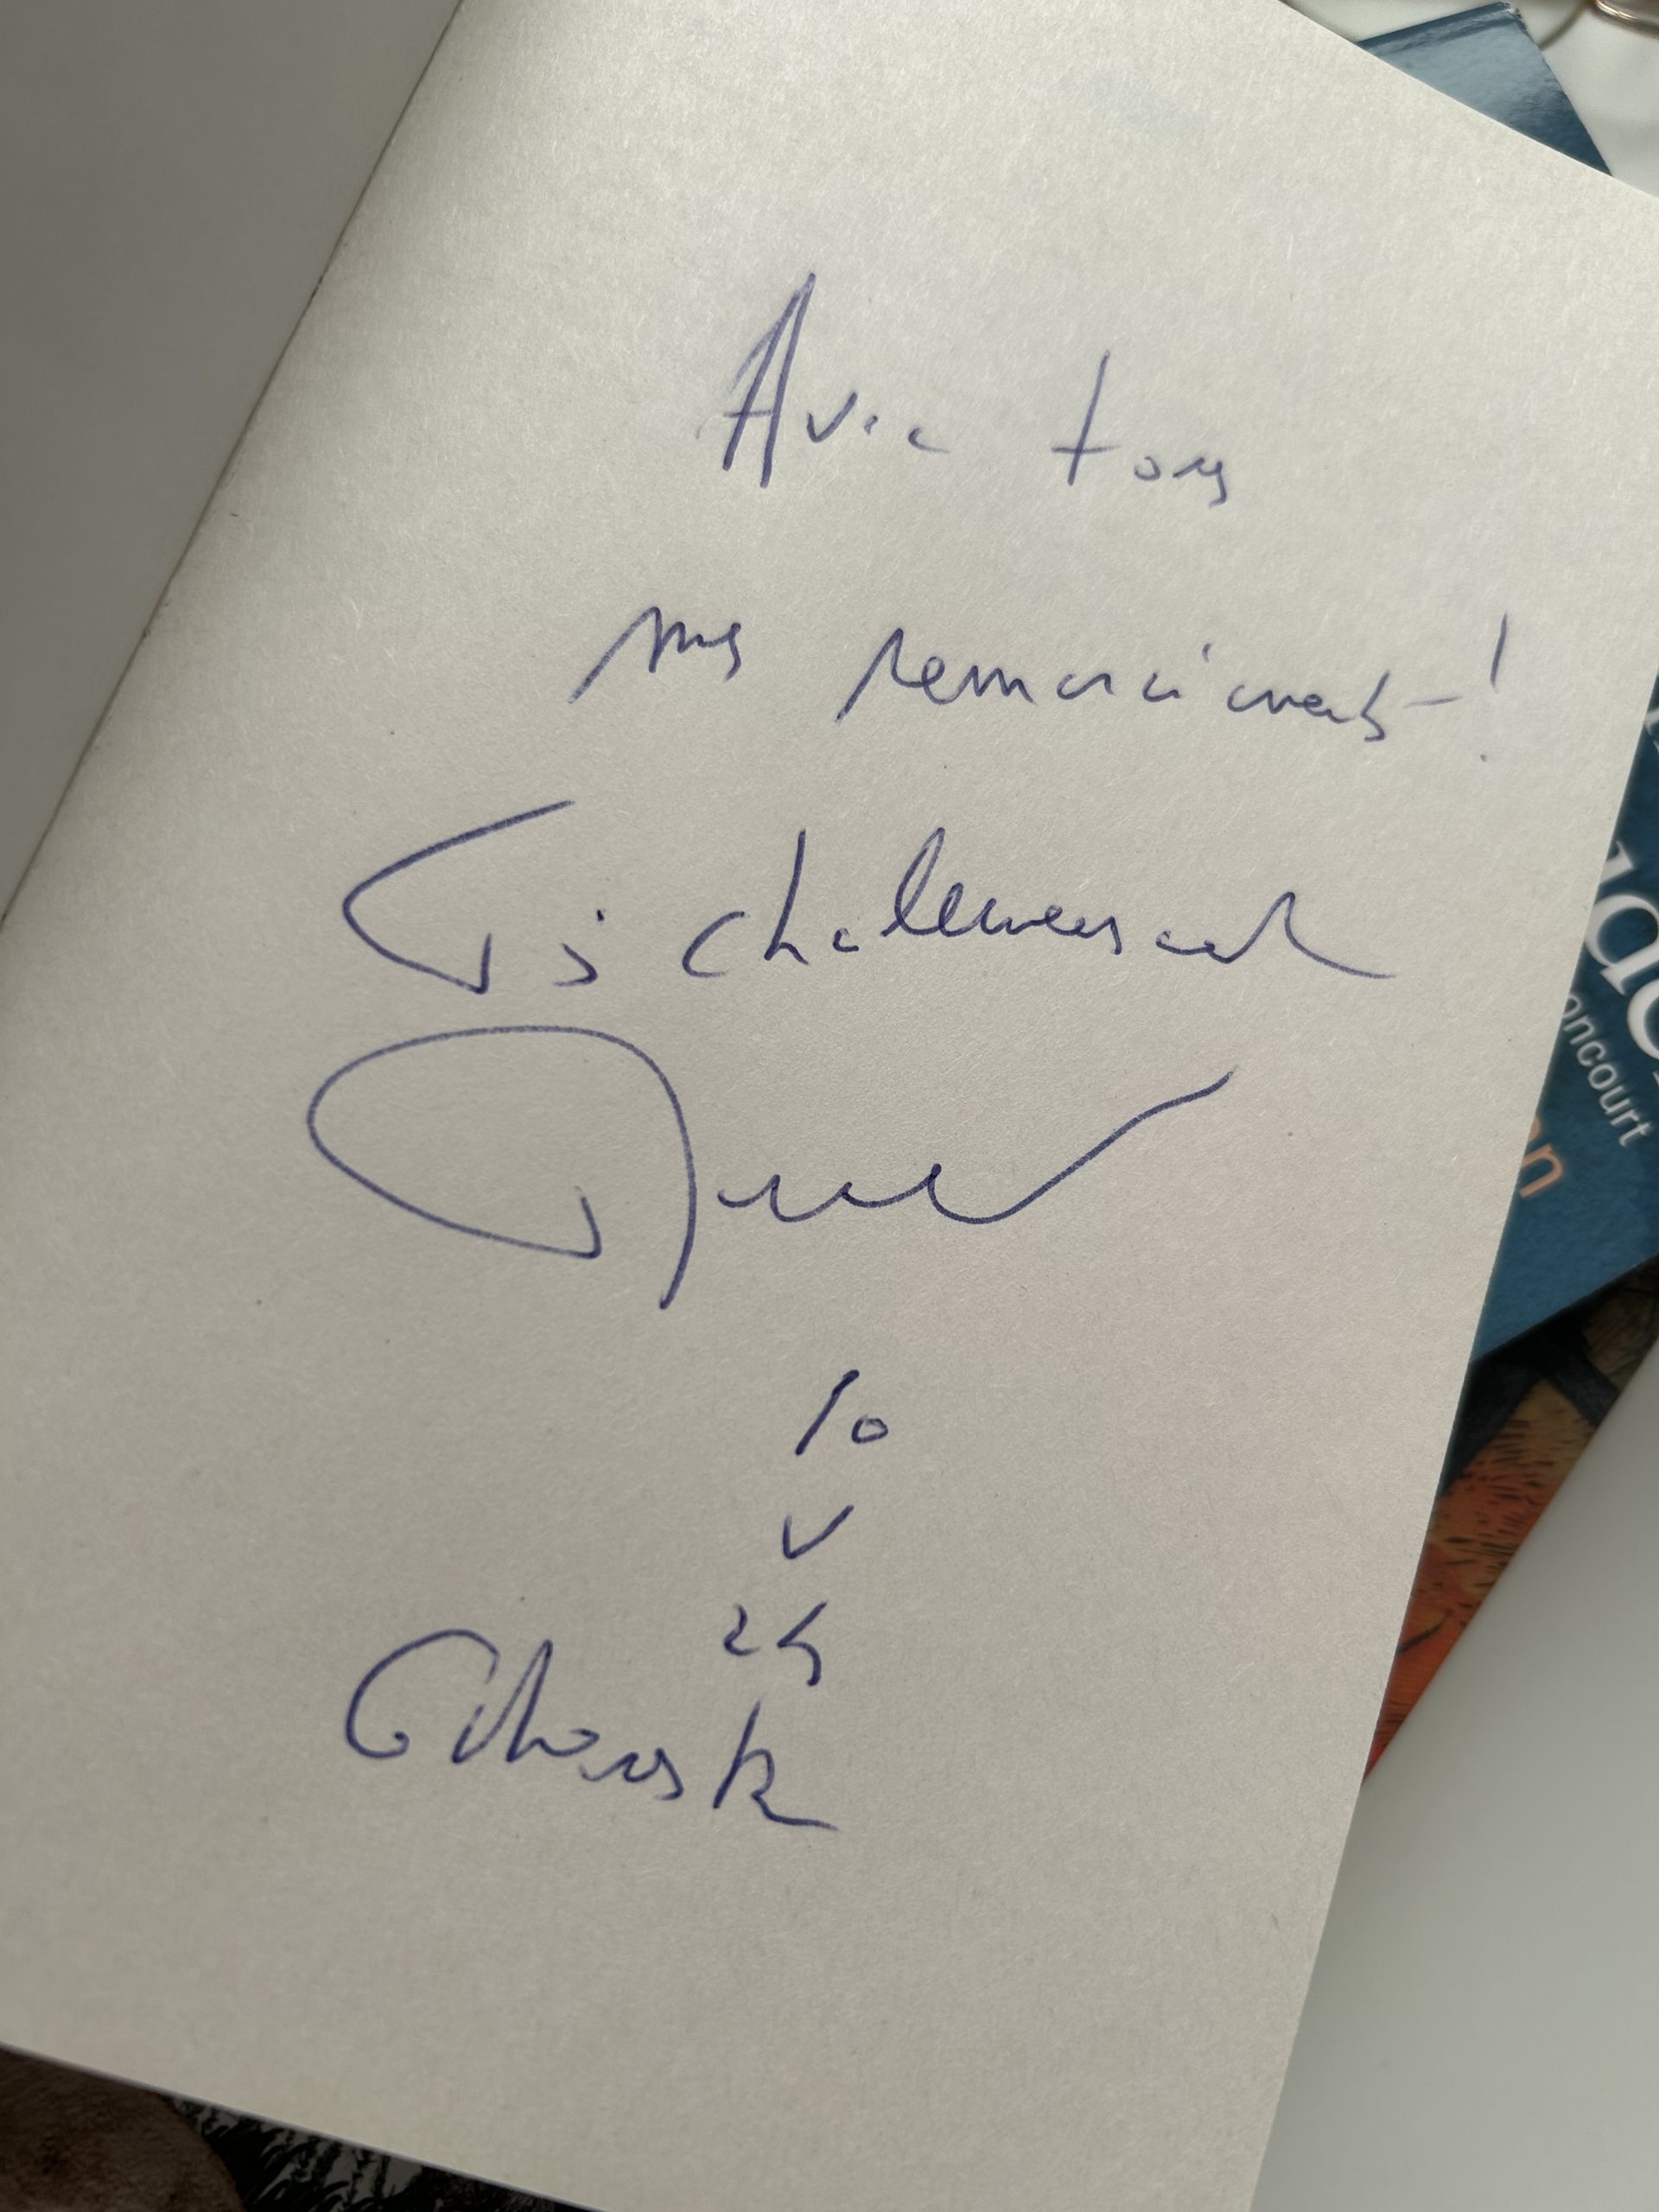 Avec tous
mes remerciements !
Très chaleureusement
10
V
24
Gdansk
oncourt